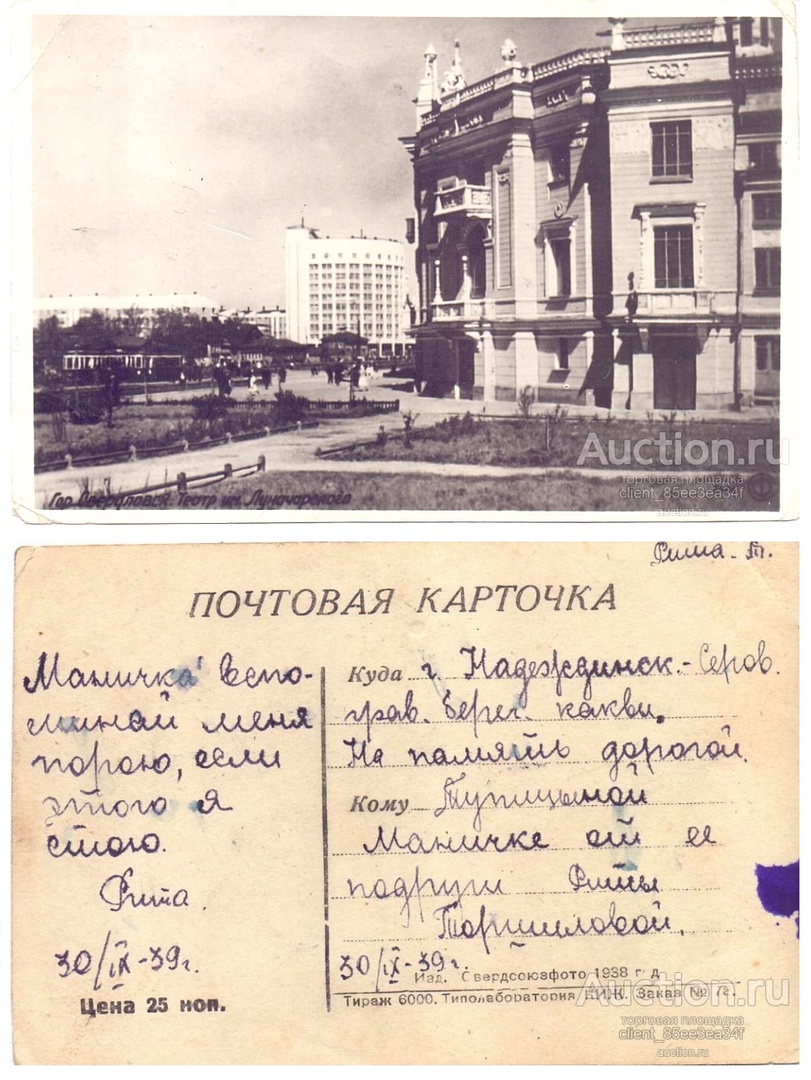 Гор. Свердловск. Театр им. Луначарского
Auction.ru
торговая площадка
client_85ee3ea34f
auction.ru
Рита. Т.
ПОЧТОВАЯ КАРТОЧКА
Маничка вспо-
минай меня
порою, если
этого я
стою.
Рита.
30/IX-39г.
Цена 25 коп.
Куда г. Надеждинск.-Серов.
прав. берег. каквы.
На память дорогой
Кому Тупицыной
Маничке от ее
подруги Риты
30/IX-39г.
Изд. Свердсоюзфото 1938 год
Тираж 6000. Типолаборатория КИЖ. Заказ №
Auction.ru
торговая площадка
client_85ee3ea34f
auction.ru